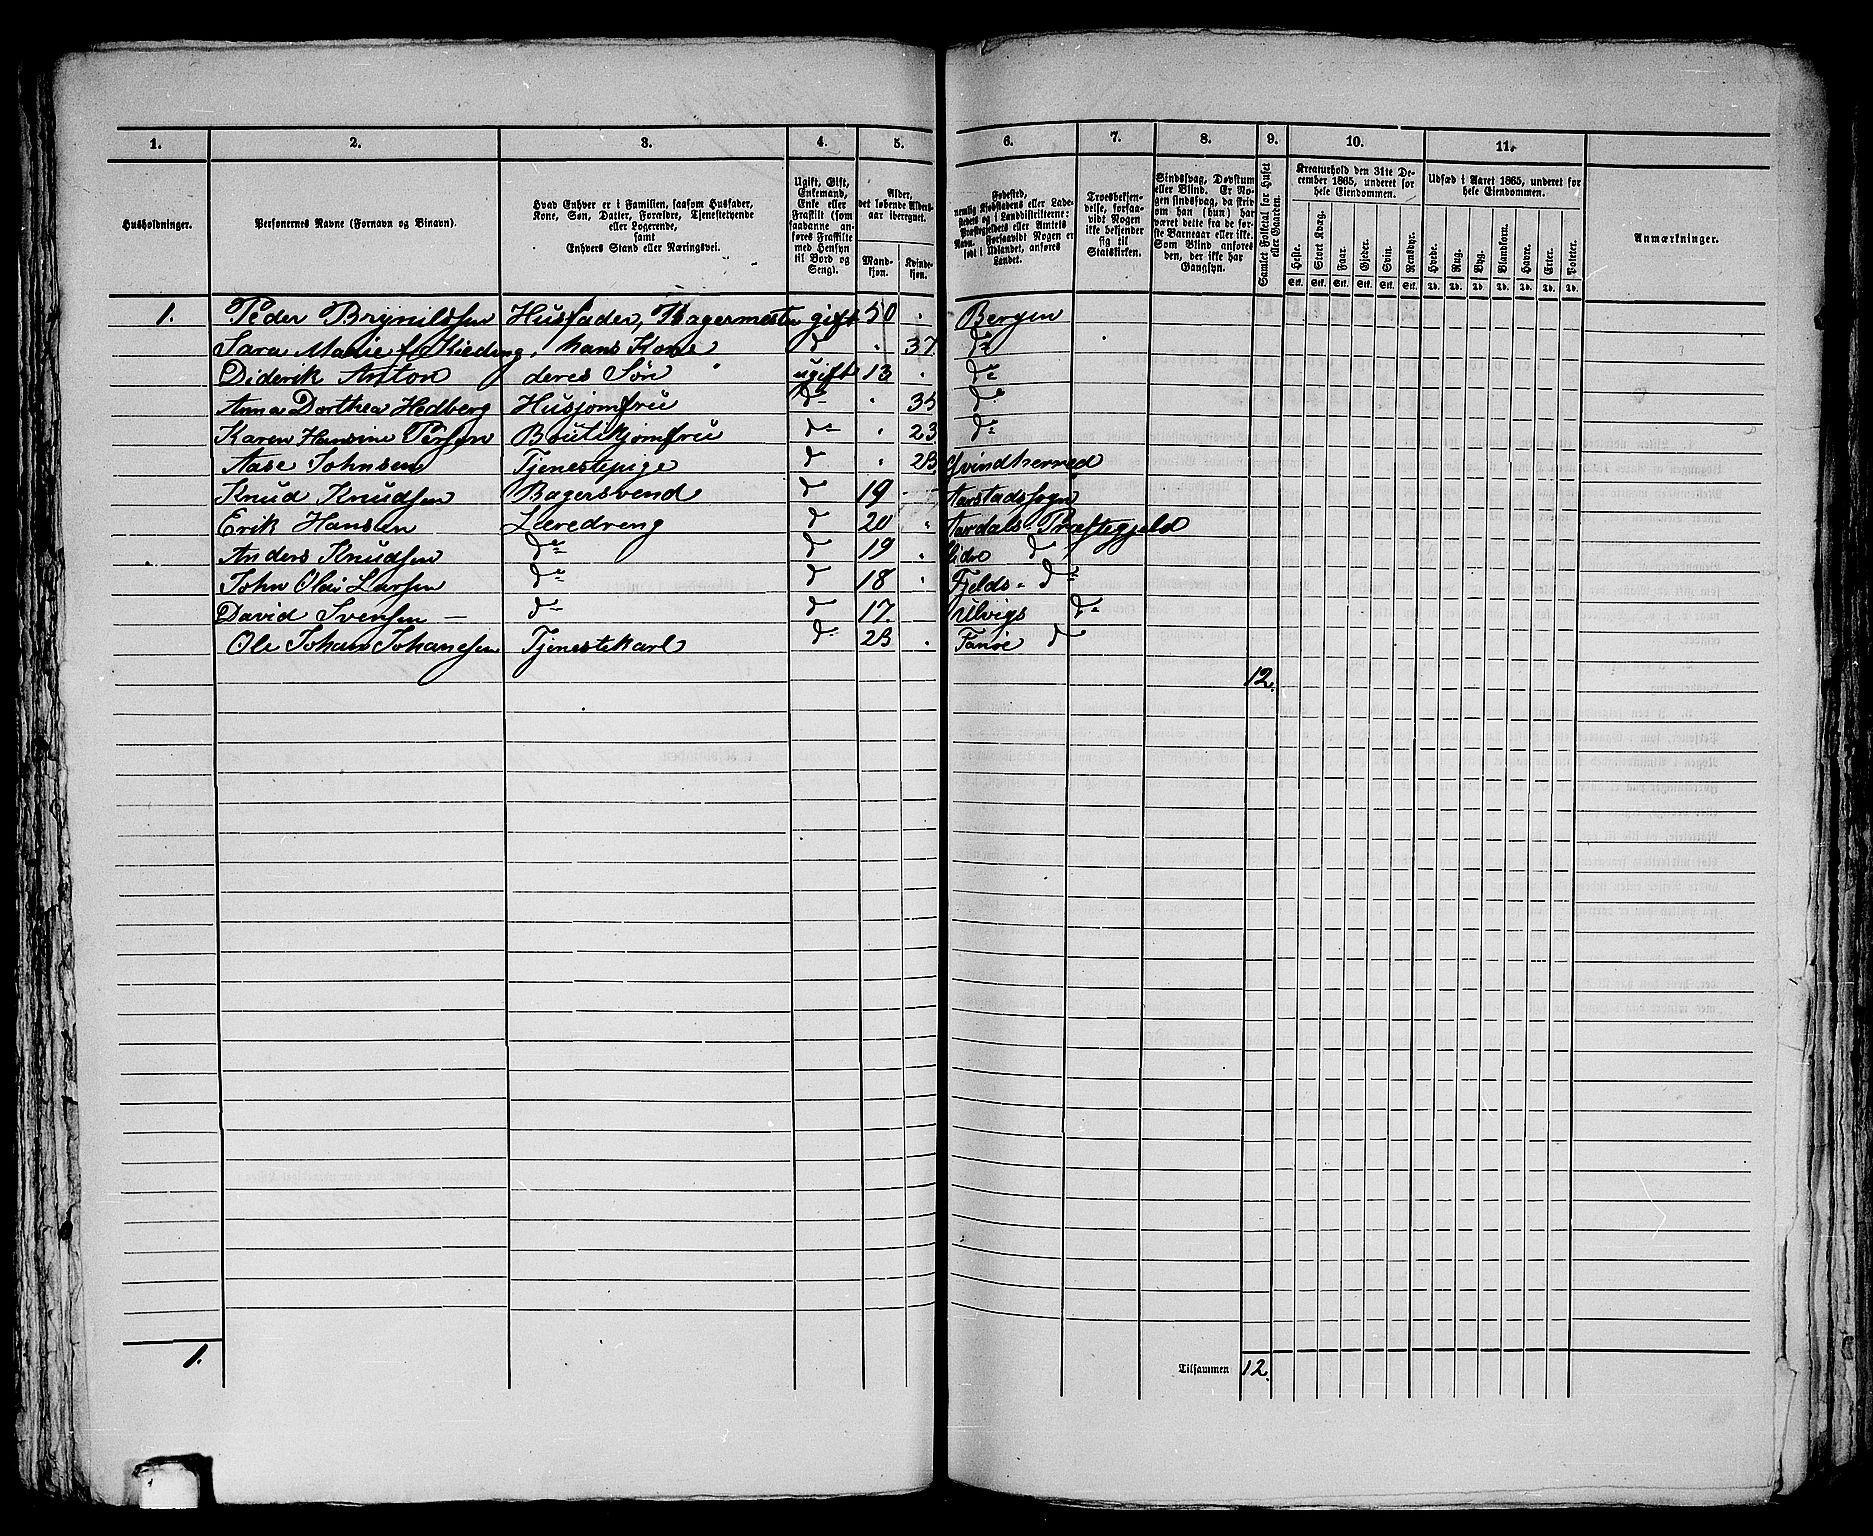 1. 2. 3. 4. 5. 6. 7. 8. 9. 10. 11.
Husholdninger.
Personernes Navne (Fornavn og Binavn).
Hvad Enhver er i Familien, saasom Husfader,
Kone, Søn, Datter, Forældre, Tjenestetyende
eller Logerende,
samt
Enhvers Stand eller Næringsvei.
Ugift, Gift,
Enkemand,
Enke eller
Fraskilt (som
saadanne an-
føres Fraskilte
med Hensyn
til Bord og
Seng).
Alder,
det løbende Alders-
aar iberegnet.
Mand-
kjøn.
Kvinde-
kjøn.
Fødested,
nemlig Kjøbstadens eller Lade-
stedets og i Landdistrikterne:
Præstegjeldets eller Amtets
Navn. Forsaavidt Nogen er
født i Udlandet, anføres
Landet.
Troesbekjen-
delse, forsaa-
vidt Nogen
ikke bekjender
sig til
Statskirken.
Sindssvag, Døvstum
eller Blind. Er No-
gen sindssvag, da skriv
om han (hun) har
været dette fra de før-
ste Barneaar eller ikke.
Som Blind anføres
den, der ikke har
Gangsyn.
Samlet Folketal for Huset
eller Gaarden.
Kreaturhold den 31te De-
cember 1865, underet for
hele Eiendommen.
Heste. Stort Kvæg. Faar. Gjeder. Svin. Rensdyr.
Stk. Stk. Stk. Stk. Stk. Stk.
Udsæd i Aaret 1865, underet for
hele Eiendommen.
Hvede. Rug. Byg. Blandkorn. Havre. Erter. Poteter.
Td. Td. Td. Td. Td. Td. Td.
Anmærkninger.
1. Peder Brynildsen Husfader, Bagermester gift 50 " Bergen
Sara Marie f. Kieding, hans Kone do " 37 do
Diderik Anton deres Søn ugift 13 " do
Anna Dorthea Hedberg Husjomfru do " 35 do
Karen Hansine Persen Boutikjomfru do " 23 do
Aase Johnsen Tjenestepige do " 23 Qvindherred
Knud Knudsen Bagersvend do 19 " Aarstadssogn
Erik Hansen Læredreng do 20 " Aardals Præstegjeld
Anders Knudsen do do 19 " do
John Olai Larsen do do 18 " Fjelds do
David Svensen do do 17. " Ulvigs do
Ole Johan Johanesen Tjenestekarl do 23 " Fanøe do
12.
1.
Tilsammen 12.